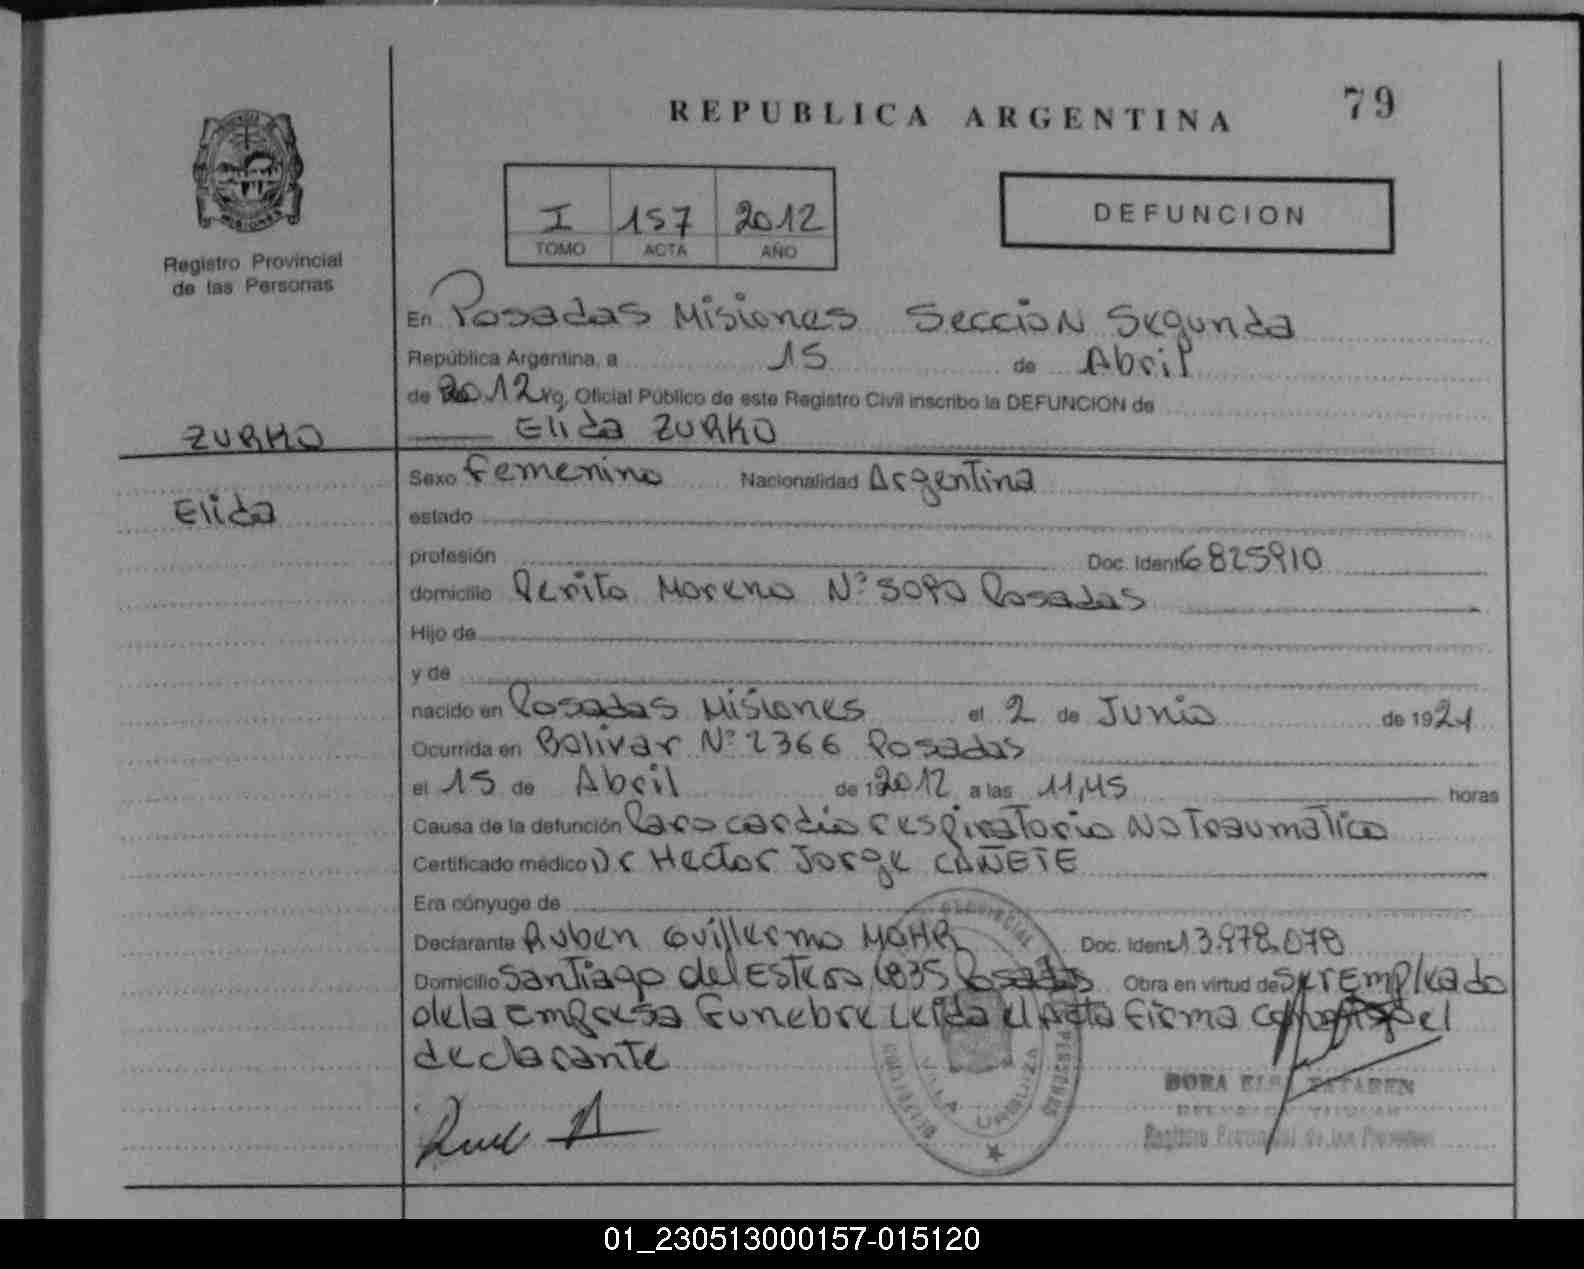 79
REPUBLICA ARGENTINA
I 157 2012
TOMO ACTA AÑO
DEFUNCION
Registro Provincial
de las Personas
En Posadas Misiones Seccion Segunda
República Argentina, a 15 de Abril
de 2012 Yo, Oficial Público de este Registro Civil inscribo la DEFUNCION de
ZURKO
Elida ZURKO
Elida
Sexo Femenino Nacionalidad Argentina
estado
profesión Doc. Ident 6825910
domicilio Perito Moreno Nº 5090 Posadas
Hijo de
y de
nacido en Posadas Misiones el 2 de Junio de 1921
Ocurrida en Bolivar Nº 2366 Posadas
el 15 de Abril de 2012 a las 11,45 horas
Causa de la defunción Paro cardio respiratorio No Traumatico
Certificado médico Dr Hector Jorge CAÑETE
Era cónyuge de
Declarante Ruben Guillermo MOHR Doc. Ident 13.978.078
Domicilio Santiago del Estero 1835 Posadas Obra en virtud de Ser Empleado
de la Empresa Funebre Leida el Acta Firma el
declarante
PROVINCIAL
VILLA URQUIZA
DORA
Registro Provincial de las Personas
01_230513000157-015120